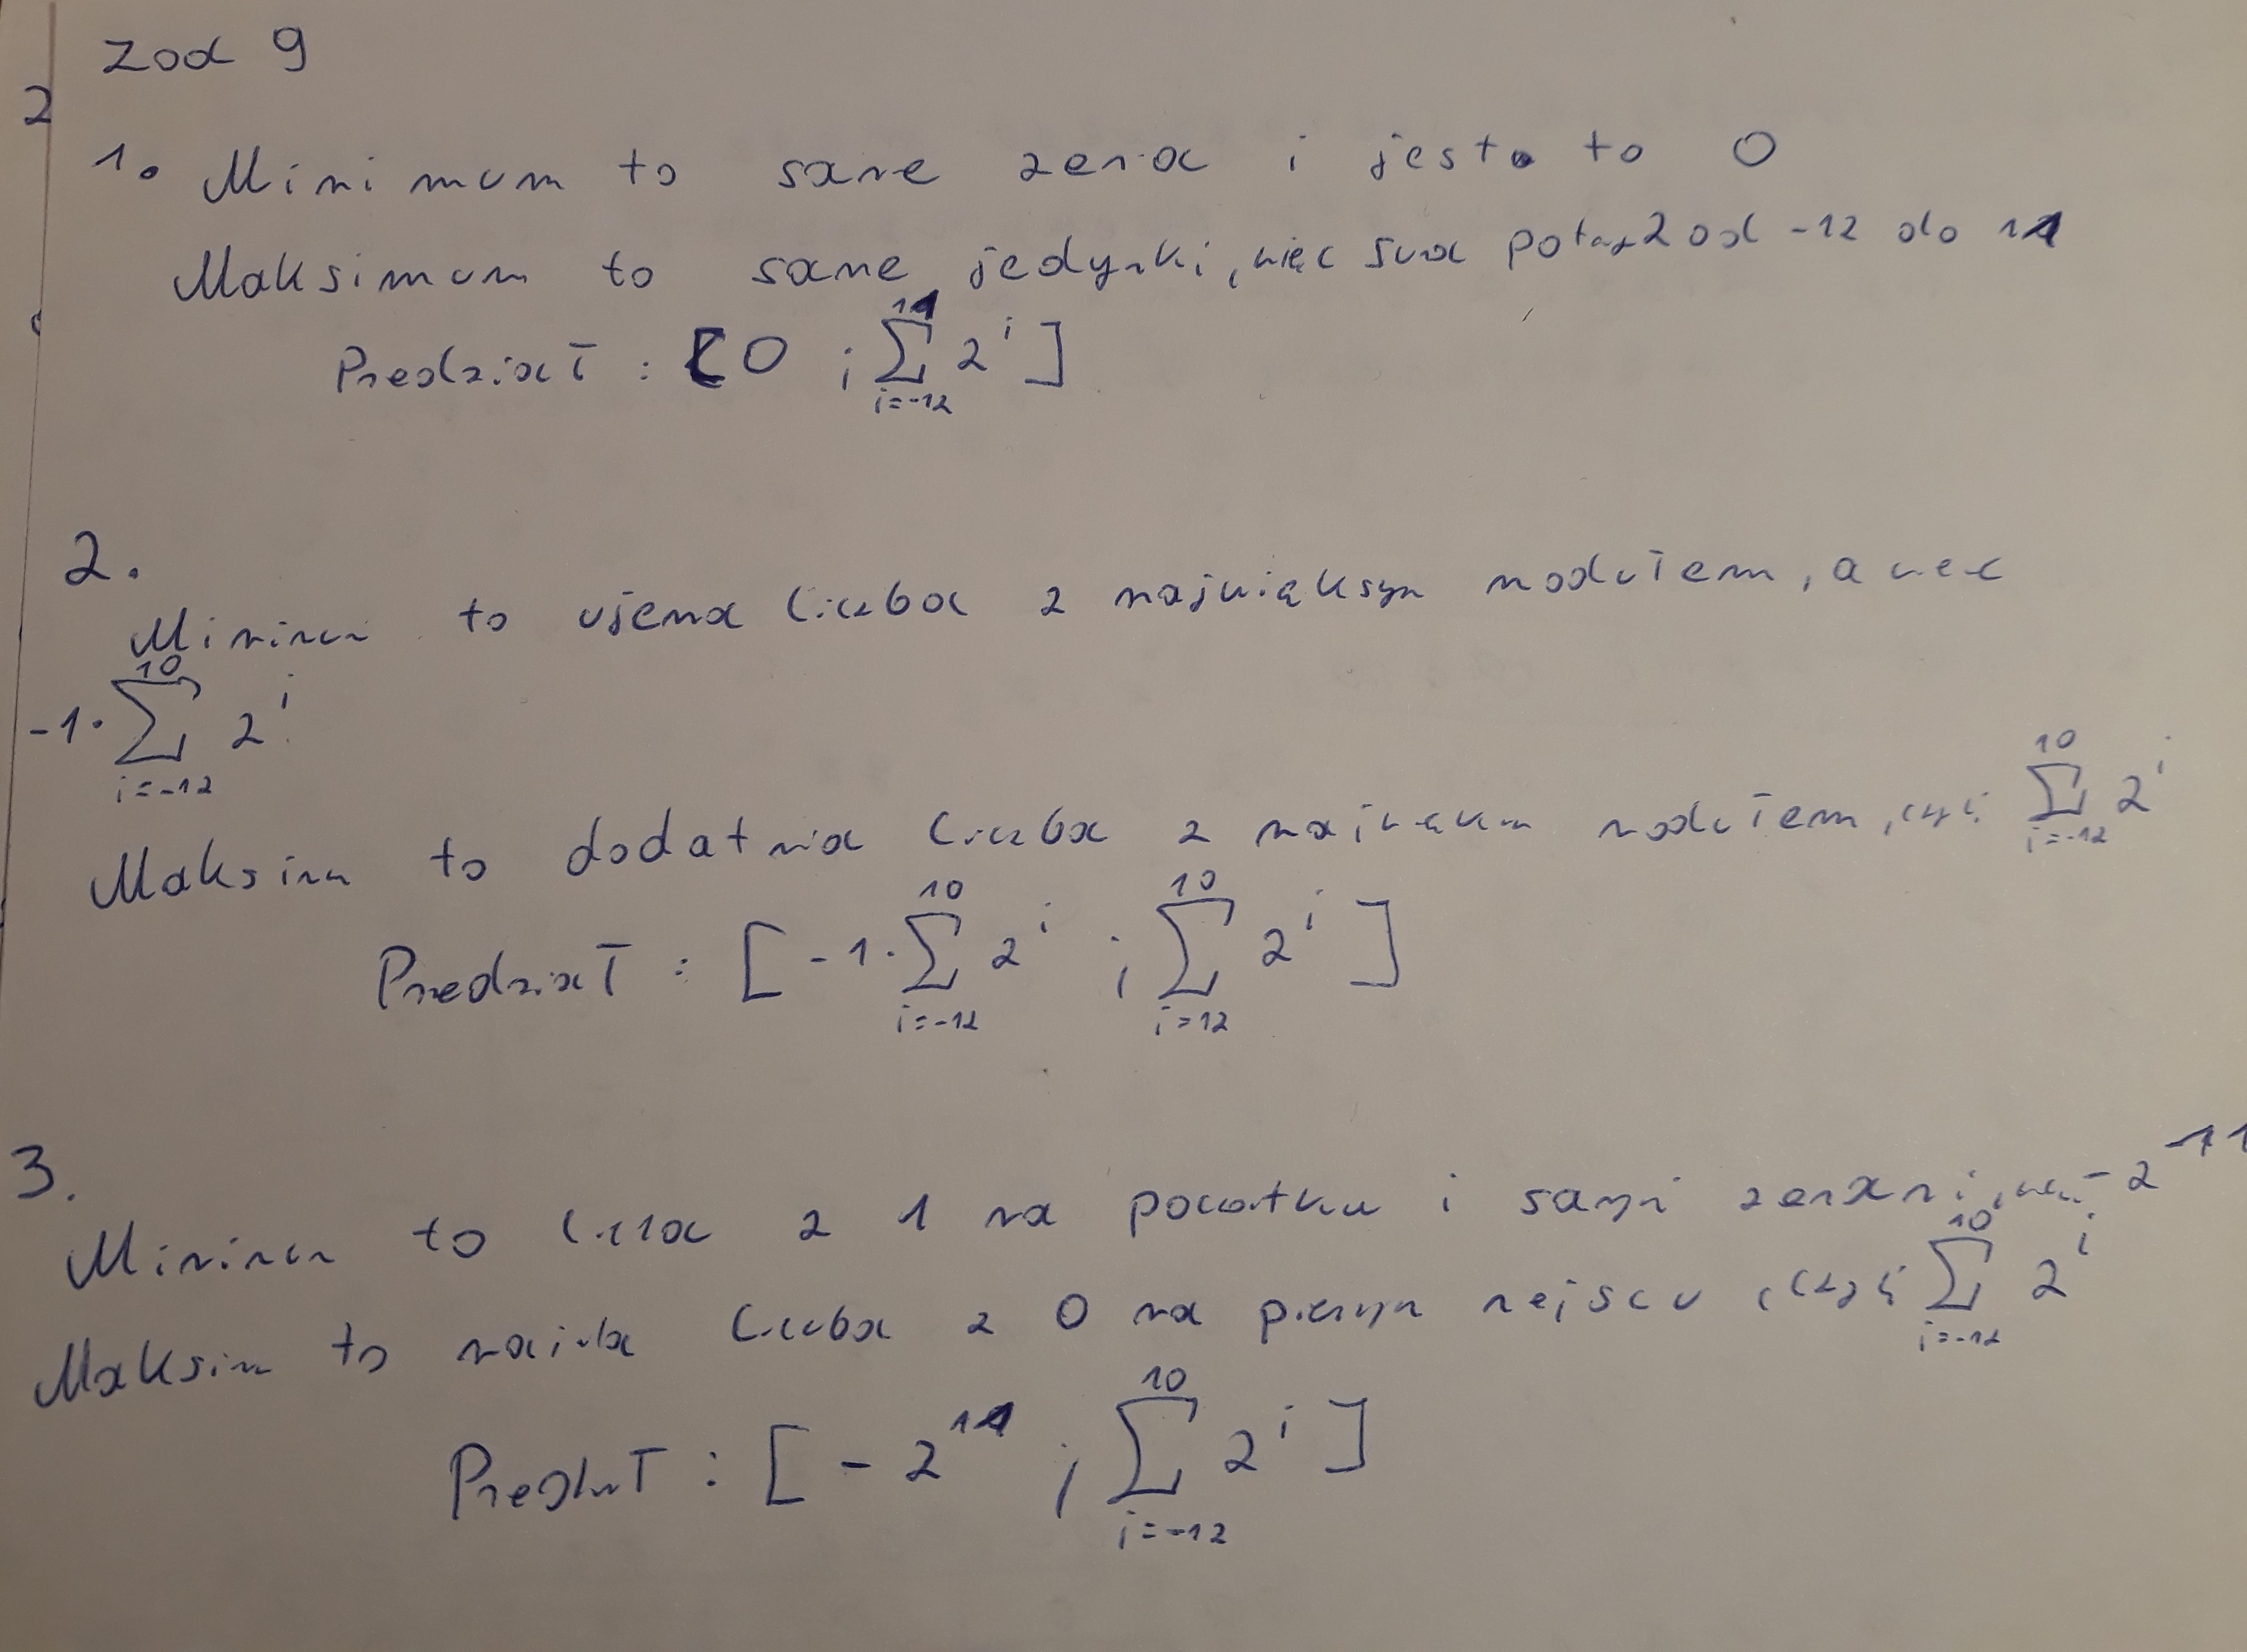 Zad 9
2
1. Minimum to same zera i jest to 0
Maksimum to same jedynki, więc suma potęg 2 od -12 do 11
Przedział : [0 ; \sum_{i=-12}^{11} 2^i]
2.
Minimum to ujemna liczba z największym modułem, a więc
-1 \cdot \sum_{i=-12}^{10} 2^i
Maksimum to dodatnia liczba z największym modułem, czyli \sum_{i=-12}^{10} 2^i
Przedział : [-1 \cdot \sum_{i=-12}^{10} 2^i ; \sum_{i=12}^{10} 2^i]
3.
Minimum to liczba z 1 na początku i samymi zerami, -2^{11}
Maksimum to liczba z 0 na pierwszym miejscu, czyli \sum_{i=-12}^{10} 2^i
Przedział : [-2^{11} ; \sum_{i=-12}^{10} 2^i]